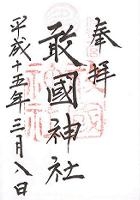 奉拝
敢國神社
平成十五年三月八日